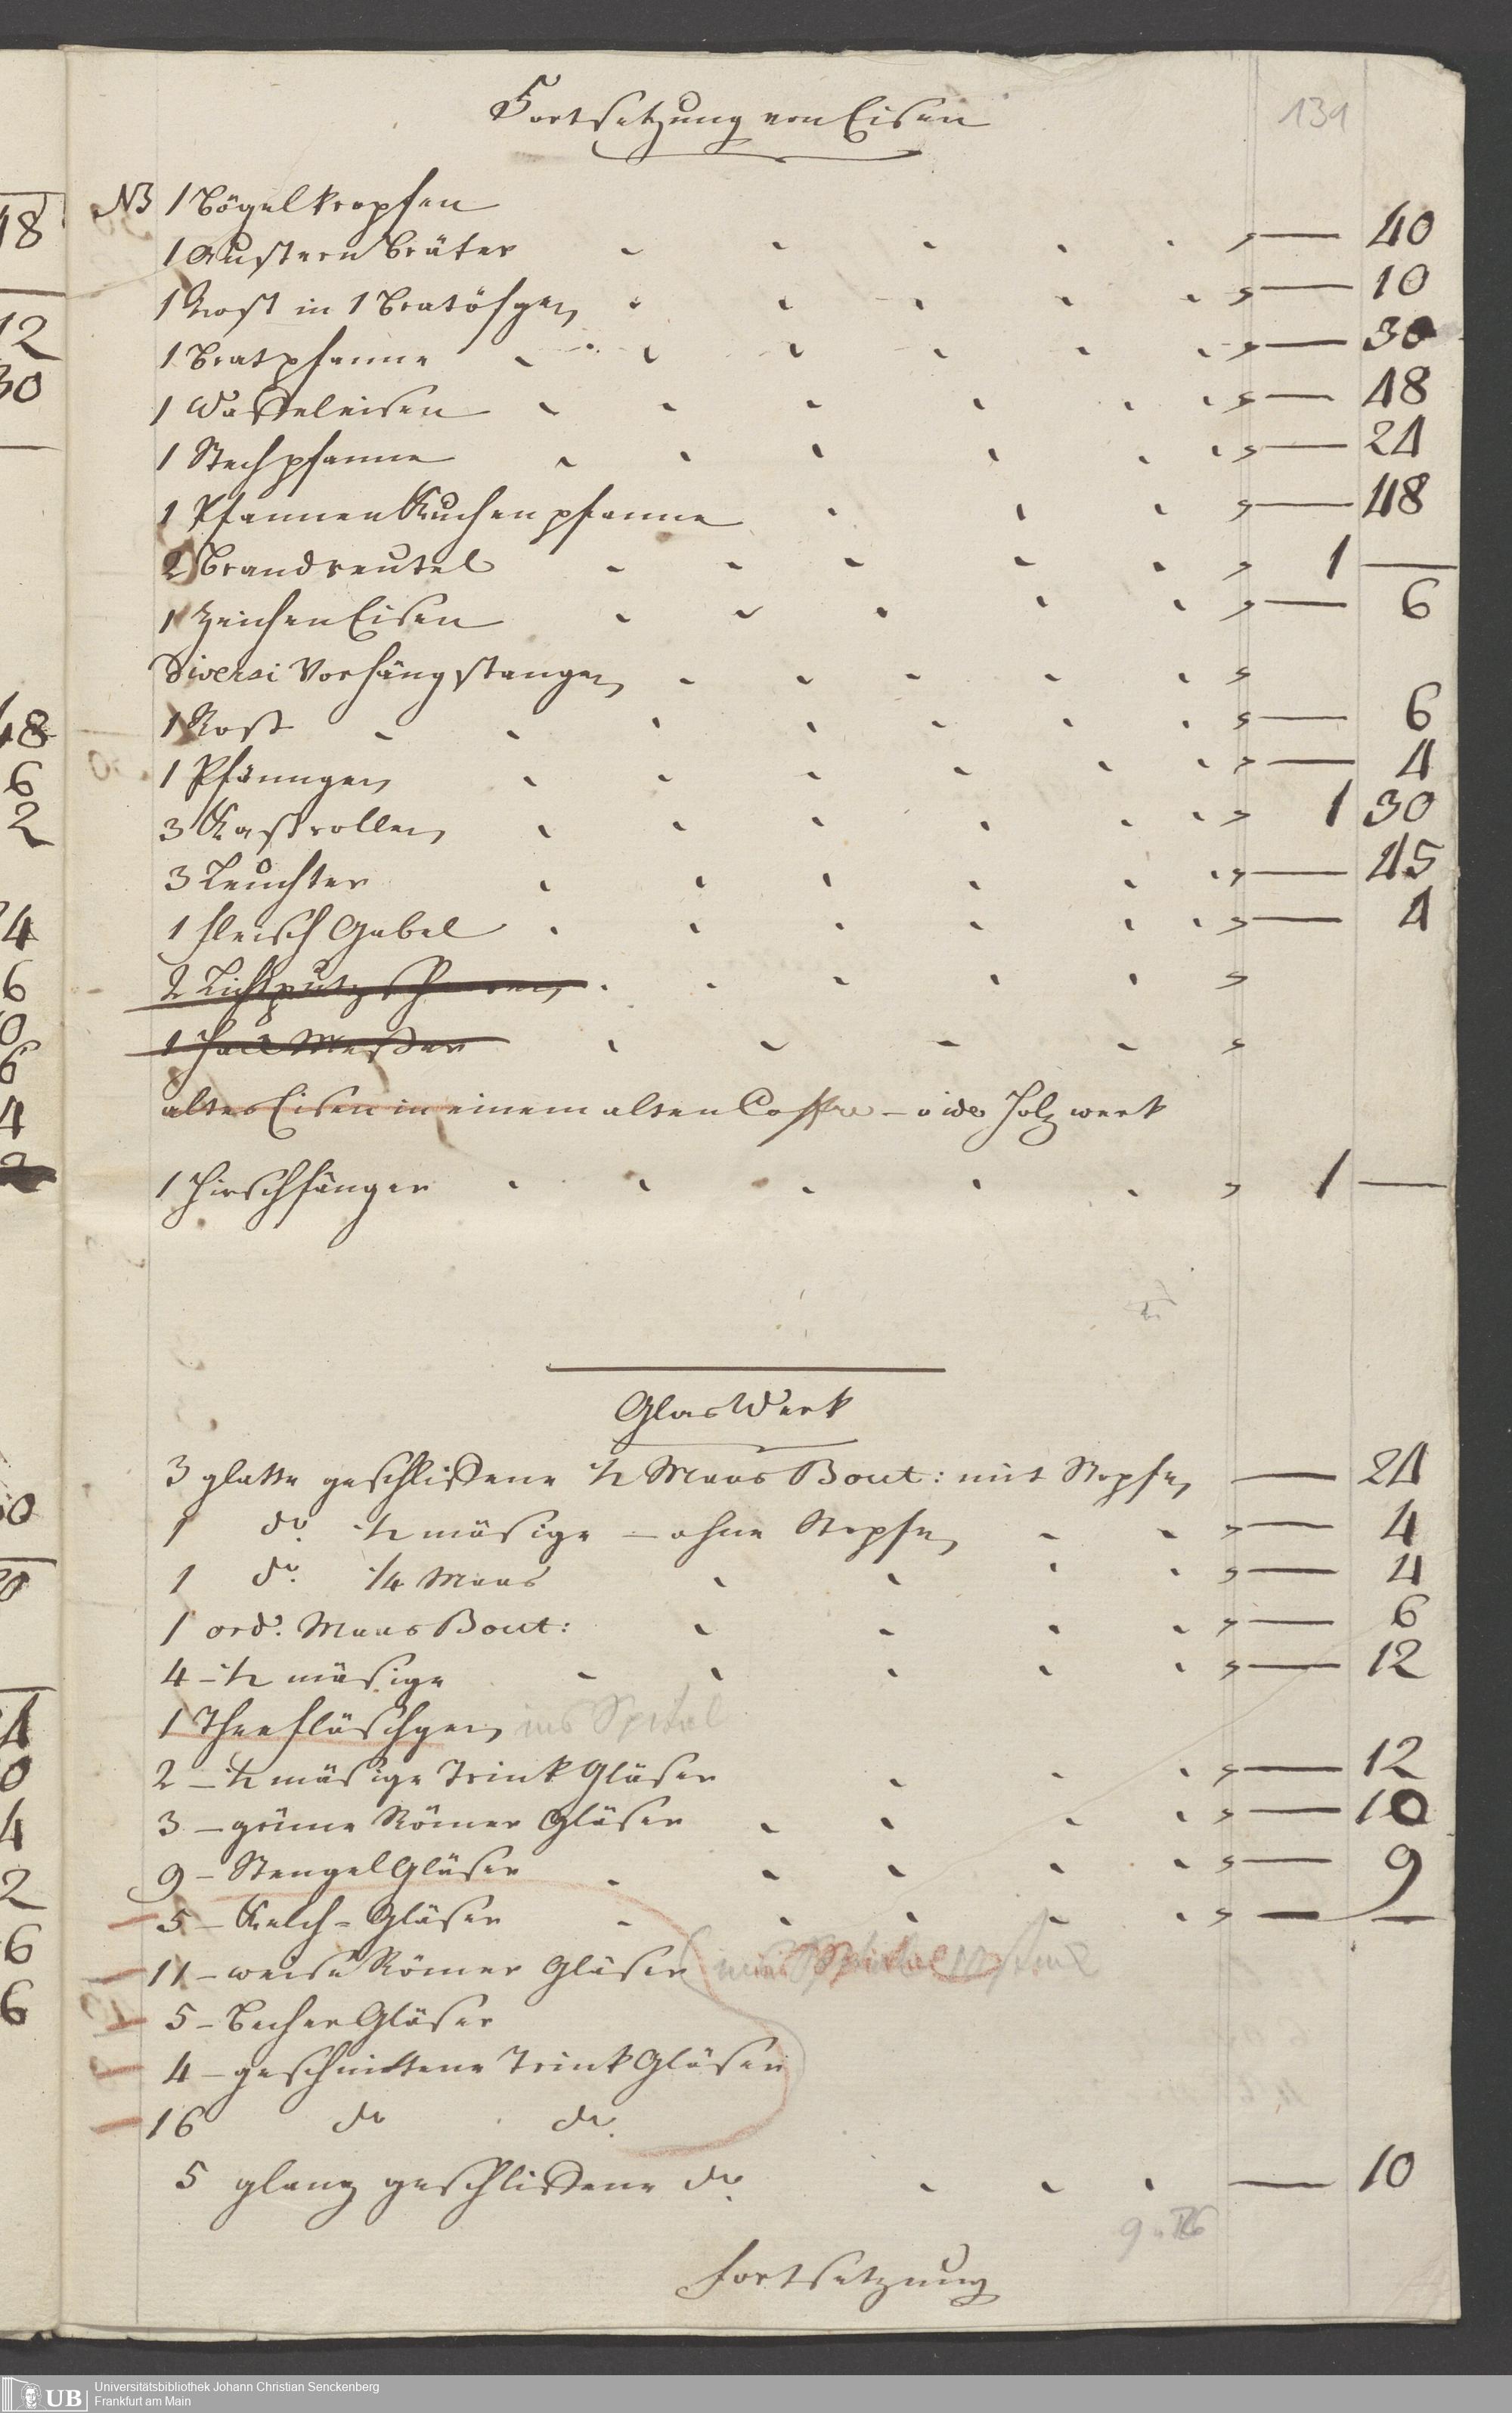 139
Fortsetzung von Eisen
NB 1 Bögelkropfen
1 Austern Bräter — 40
1 Rost in 1 Bratöfgen — 10
1 Bratpfanne — 30
1 Waffeleisen — 48
1 Stechpfanne — 24
1 Pfannen Kuchen pfanne — 48
2 Brandreutel 1 —
1 Zeichen Eisen — 6
Diversi Vorhäng stangen
1 Rost — 6
1 Pfänngen — 4
3 Kastrollen 1 30
3 Leuchter — 45
1 fleisch Gabel — 4
2 Lichtputz scheeren
1 Hack Messer
altes Eisen in einem alten Coffre - vide Holzwerk
1 Hirschfänger 1 —
Glas Werk
3 glatte geschlissene 1/2 Maas Bout: mit Stopfen — 24
1 do. 1/2 mäsige - ohne Stopfen — 4
1 do. 1/4 Maas — 4
1 ord. Maas Bout: — 6
4 - 1/2 mäsige — 12
1 Theefläschgen ins Spital
2 - 1/2 mäsige Trink Gläser — 12
3 - grüne Römer Gläser — 10
9 - Stengel Gläser — 9
5 - Kelch = Gläser — —
11 - weise Römer Gläser Spital
5 - Becher Gläser
4 - geschnittene Trink Gläser
16 do do.
5 glanz geschlissene do. — 10
Fortsetzung
UB
Universitätsbibliothek Johann Christian Senckenberg
Frankfurt am Main